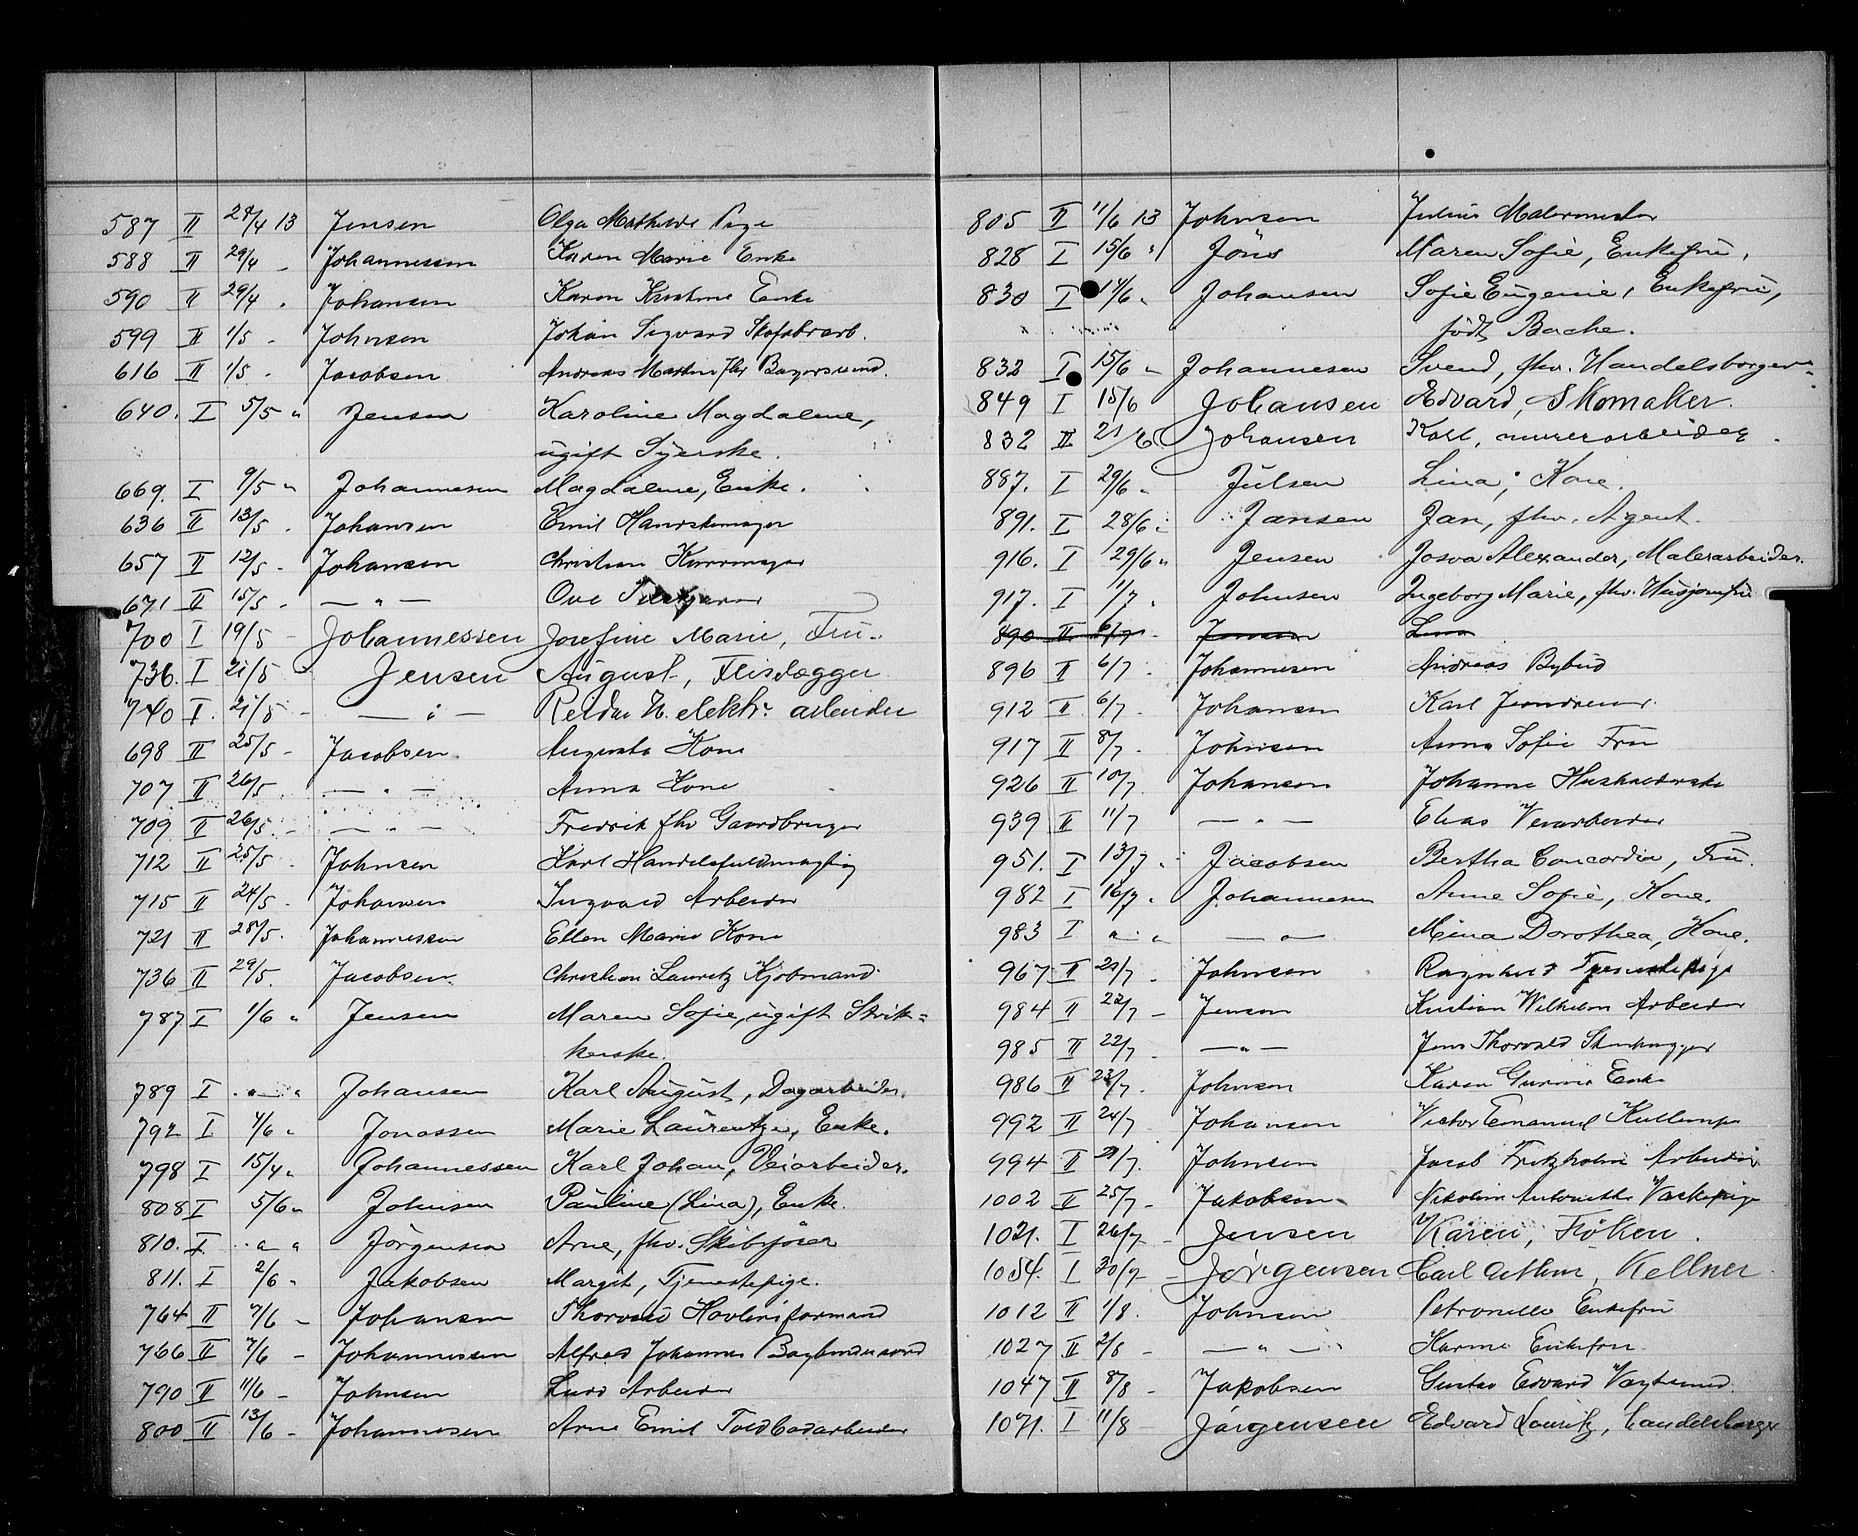 587 II 28/4 13 Jensen Olga Mathilde Pige
588 II 29/4 - Johannessen Karen Marie Enke
590 II 29/4 . Johansen Karen Kristine Enke
599 II 1/5 - Johnsen Johan Sigvard
616 II 1/5 - Jacobsen Andreas Martin fhv
640. I 5/5 " Jensen Karoline Magdalene,
ugift Syerske.
669. I 9/5 " Johannesen Magdalene, Enke.
636 II 13/5 . Johansen Emil Handskemager
657 II 12/5 - Johansen Christian Kurvmager
671 II 15/5 - — " — Ove
700 I 19/5 - Johannessen Josefine Marie, Fru.
736. I 21/5 Jensen August, Flislægger
740 I. 21/5 - — " — Reidar H. elektr. arbeider
698 II 25/5 - Jacobsen Augusta Kone
707 II 26/5 . — " — Anna Kone
709 II 26/5 - — " — Fredrik fhv Gaardbruger
712 II 25/5 - Johnsen Karl Handelsfuldmægtig
715 II 24/5 - Johansen Ingvard Arbeider
721 II 28/5 . Johannessen Ellen Marie Kone
736 II 29/5 . Jacobsen Christian Lauritz Kjøbmand
787 I 1/6 " Jensen Maren Sofie, ugift Strik=
kerske.
789 I " " Johansen Karl August, Dagarbeider.
792 I 4/6 " Jonassen Marie Laurentze, Enke.
798 I 15/4 " Johannessen Karl Johan, Veiarbeider.
808 I 5/6 " Johnsen Pauline (Lina), Enke.
810. I " " Jörgensen Arne, fhv. Skibsfører
811. I 2/6 " Jakobsen Margit, Tjenestepige.
764 II 7/6 - Johansen Thorvald Høvleriformand
766 II 7/6 - Johannessen Alfred Johannes
790 II 11/6 - Johnsen Arbeider
800 II 13/6 - Johannesen Arne Emil Toldbodarbeider
805 II 11/6 13 Johnsen Julius Malermester
828 I 15/6 " Jöns Maren Sofie, Enkefru.
830 I 14/6 " Johansen Sofie Eugenie, Enkefru,
født Bache.
832 I 15/6 " Johannesen Svend, fhv. Handelsborger
849 I 15/6 Johansen Edvard, Skomaker.
832 II 21/6 Johansen Karl, murerarbeider
887. I 29/6 " Julsen Lina, Kone.
891. I 28/6 " Jansen Jan, fhv. Agent.
916. I 29/6 " Jensen Josva Alexander, Malerarbeider.
917. I 11/7 " Johnsen Ingeborg Marie, fhv. Husjomfru
890 II 6/7 - Jensen Lina
896 II 6/7 - Johannesen Andreas Bybud
912 II 6/7 - Johansen Karl
917 II 8/7 - Johnsen Anna Sofie Fru
926 II 10/7 - Johansen Johanne Husholderske
939 II 11/7 — " — Elias Veiarbeider
951. I 13/7 " Jacobsen Bertha Concordia, Fru.
982 I 16/7 " Johannesen Anne Sofie, Kone.
983 I " " — " — Mina Dorothea, Kone.
967 II 21/7 - Johnsen Ragnhild Tjenestepige
984 II 22/7 - Jensen Kristian Wilhelm Arbeider
985 II 22/7 - — " — Jens Thorvald Stenhugger
986 II 23/7 - Johnsen Karen Gurine Enke
992 II 24/7 - Johansen Victor Emanuel
994 II 21/7 - Johnsen Jacob Fritzholm Arbeider
1002 II 25/7 - Jakobsen Nikoline Antonette Vaskepige
1021. I 26/7 - Jensen Karen, Frøken.
1054. I 30/7 - Jørgensen Carl Arthur, Kellner
1012 II 1/8 . Johnsen Petronelle Enkefru
1027 II 2/8 - — " — Karine Enkefru
1047 II 8/8 - Jakobsen Gustav Edvard
1071. I 11/8 - Jørgensen Edvard Lauritz, handelsborger